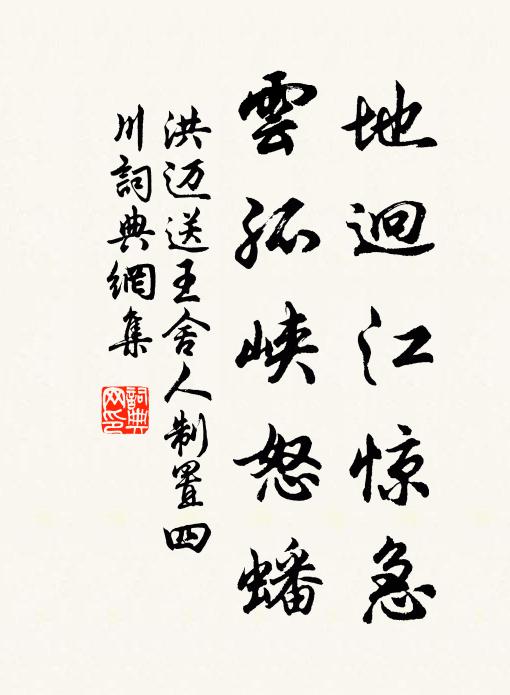 地迥江惊急
雲孤峡怒蟠
洪迈送王舍人制置四
川詞典網集
詞典
网印